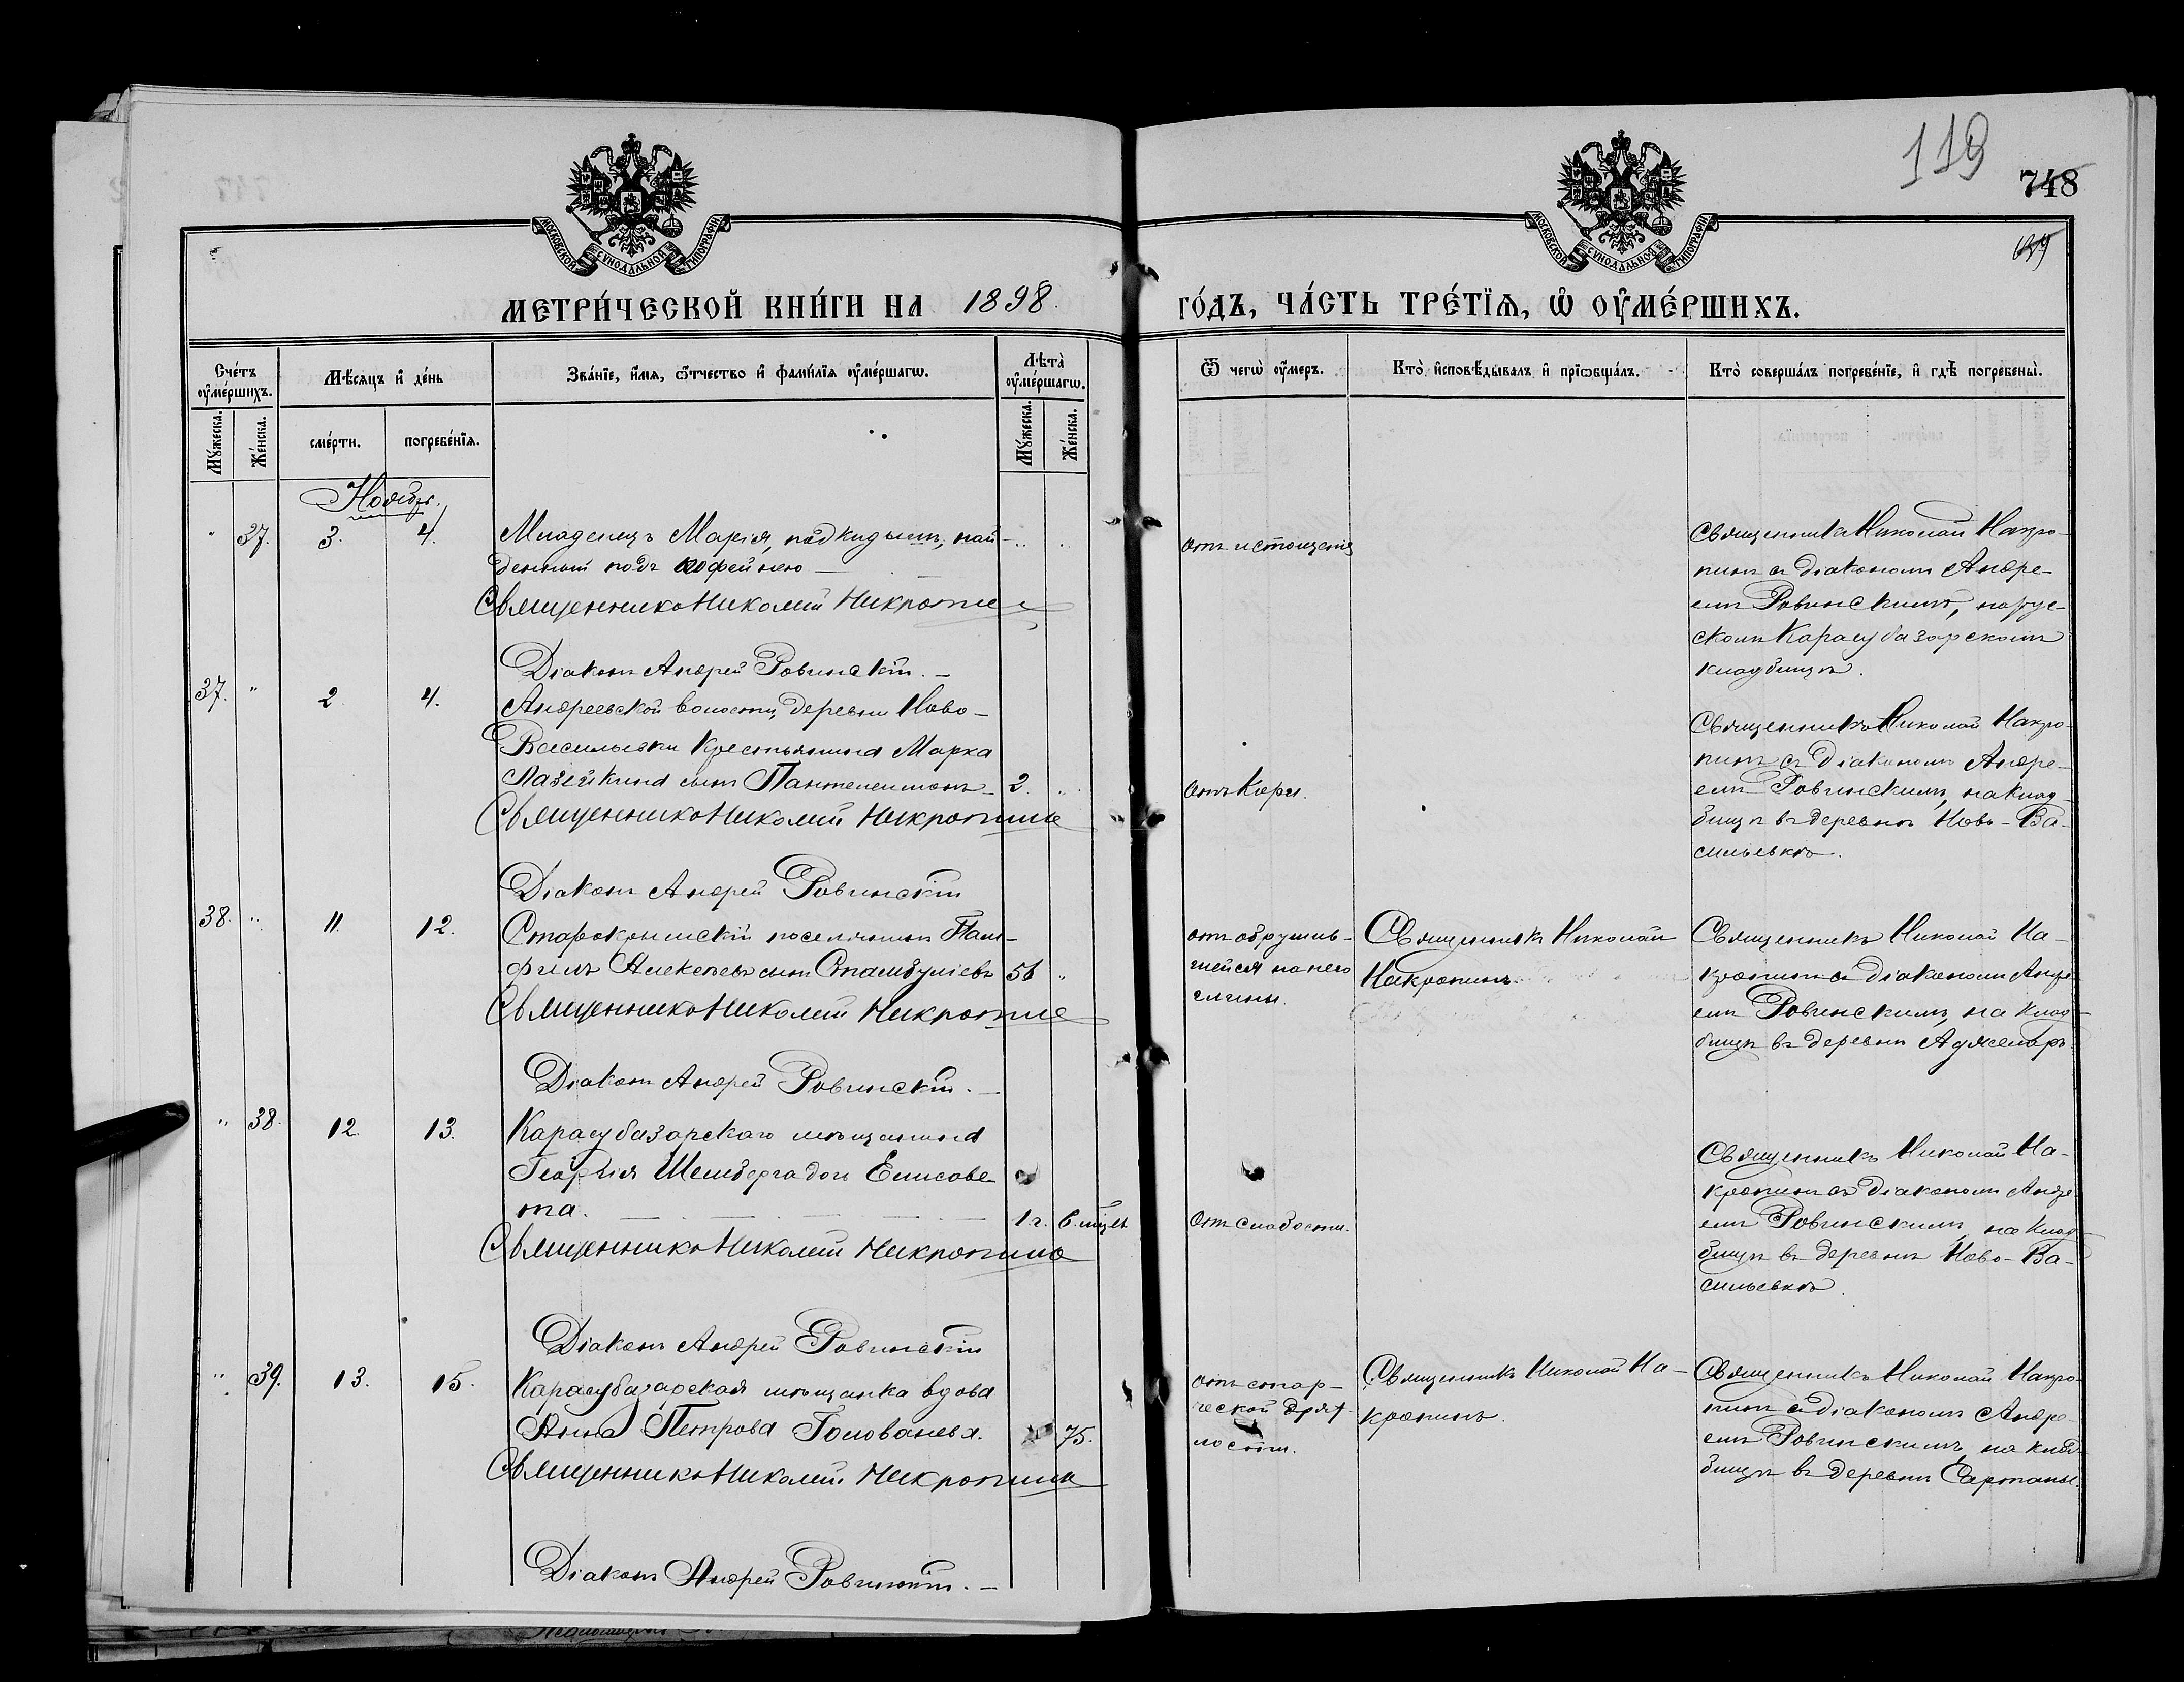 119
748
МОСКОВСКОЙ СѴНОДАЛЬНОЙ ТИПОГРАФІИ
МОСКОВСКОЙ СѴНОДАЛЬНОЙ ТИПОГРАФІИ
МЕТРИ́ЧЕСКОЙ КНИ́ГИ НА 1898.
ГО́ДЪ, ЧА́СТЬ ТРЕ́ТЇѦ, Ѡ҆ ОУ҆МЕ́РШИХЪ.
Сче́тъ оу҆ме́ршихъ.
Мѣ́сяцъ и҆ де́нь
Зва́нїе, и҆́мѧ, ѻ҆́тчество и҆ фами́лїѧ оу҆ме́ршагѡ.
Лѣта̀ оу҆ме́ршагѡ.
Ѿ чегѡ̀ оу҆́меръ.
Кто̀ и҆сповѣ́дывалъ и҆ прїѡбща́лъ.
Кто̀ соверша́лъ погребе́нїе, и҆ гдѣ̀ погребены̀.
Мꙋ́жеска.
Же́нска.
сме́рти.
погребе́нїѧ.
Мꙋ́жеска.
Же́нска.
Ноябрь.
" 37. 3. 4.
Младенецъ Марія, подкидышъ, най-
денный подъ кофейнею —
Священникъ Николай Накропинъ
Діаконъ Андрей Ровинскій. —
отъ истощенія
Священникъ Николай Накро-
пинъ съ діакономъ Андре-
емъ Ровинскимъ, на рус-
скомъ Карасубазарскомъ
кладбищѣ.
37. " 2 4.
Андреевской волости, деревни Ново-
Васильевки крестьянина Марка
Лазейкина сынъ Пантелеимонъ — 2. "
Священникъ Николай Накропинъ
Діаконъ Андрей Ровинскій
отъ Кори.
Священникъ Николай Накро-
пинъ съ діакономъ Андре-
емъ Ровинскимъ, на клад-
бищѣ въ деревнѣ Ново-Ва-
сильевкѣ.
38. " 11. 12.
Старокрымскій поселянинъ Пам-
филъ Алексѣевъ сынъ Стамбуліевъ 56 "
Священникъ Николай Накропинъ
Діаконъ Андрей Ровинскій. —
отъ обрушив-
шейся на него
глины.
Священникъ Николай
Накропинъ.
Священникъ Николай На-
кропинъ съ діакономъ Андре-
емъ Ровинскимъ, на клад-
бищѣ въ деревнѣ Аджеларъ.
" 38. 12. 13.
Карасубазарскаго мѣщанина
Георгія Шемберга дочь Елисаве-
та. — 1 г. 6. мцѣв
Священникъ Николай Накропинъ
Діаконъ Андрей Ровинскій
Отъ слабости.
Священникъ Николай На-
кропинъ съ діакономъ Андре-
емъ Ровинскимъ, на клад-
бищѣ въ деревнѣ Ново-Ва-
сильевкѣ.
" 39. 13. 15.
Карасубазарская мѣщанка вдова
Анна Петрова Голованева. 75.
Священникъ Николай Накропинъ
Діаконъ Андрей Ровинскій. —
отъ стар-
ческой дрях-
лости.
Священникъ Николай На-
кропинъ.
Священникъ Николай Накро-
пинъ съ діакономъ Андре-
емъ Ровинскимъ, на клад-
бищѣ въ деревнѣ Сартаны.